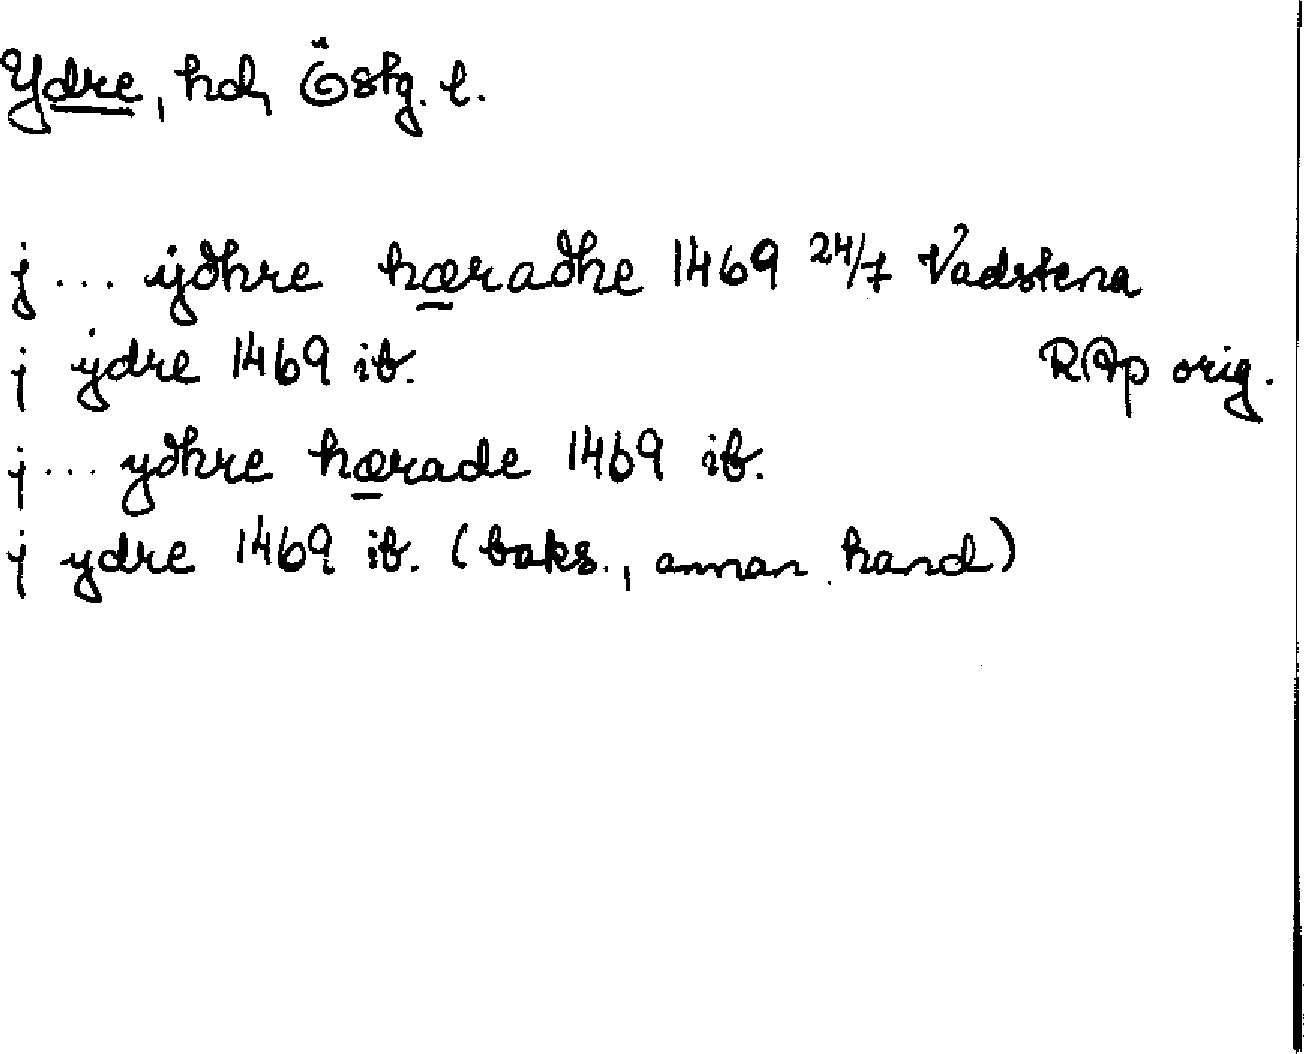 Ydre, hd, Östg. l.
j ... ẏdhre hæradhe 1469 24/7 Vadstena
j ẏdre 1469 ib. RAp orig.
j ... ydhre hærade 1469 ib.
j ydre 1469 ib. (baks., annan hand)